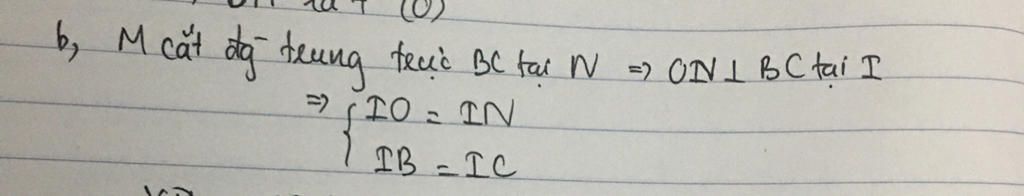 (O)
b, M cắt đg trung trực BC tại N => ON ⊥ BC tại I
=> { IO = IN
IB = IC